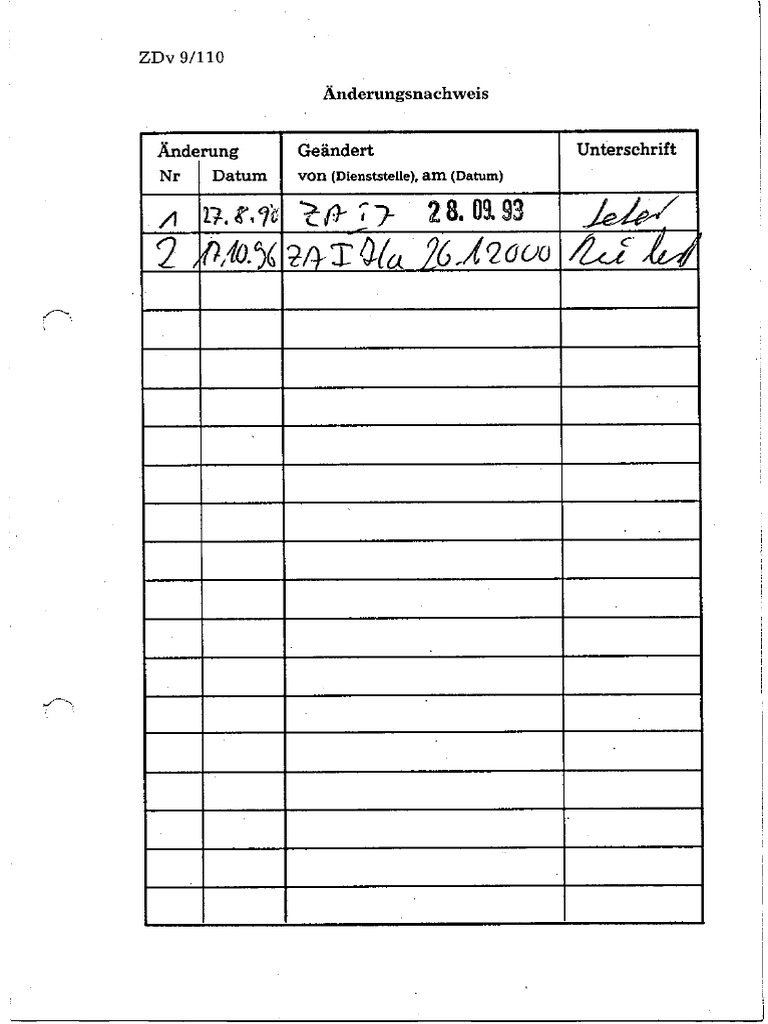 ZDv 9/110
Änderungsnachweis
Änderung Geändert Unterschrift
Nr Datum von (Dienststelle), am (Datum)
1 27.8.90 ZA 28.09.93
2 17.10.96 ZA I 26.1.2000